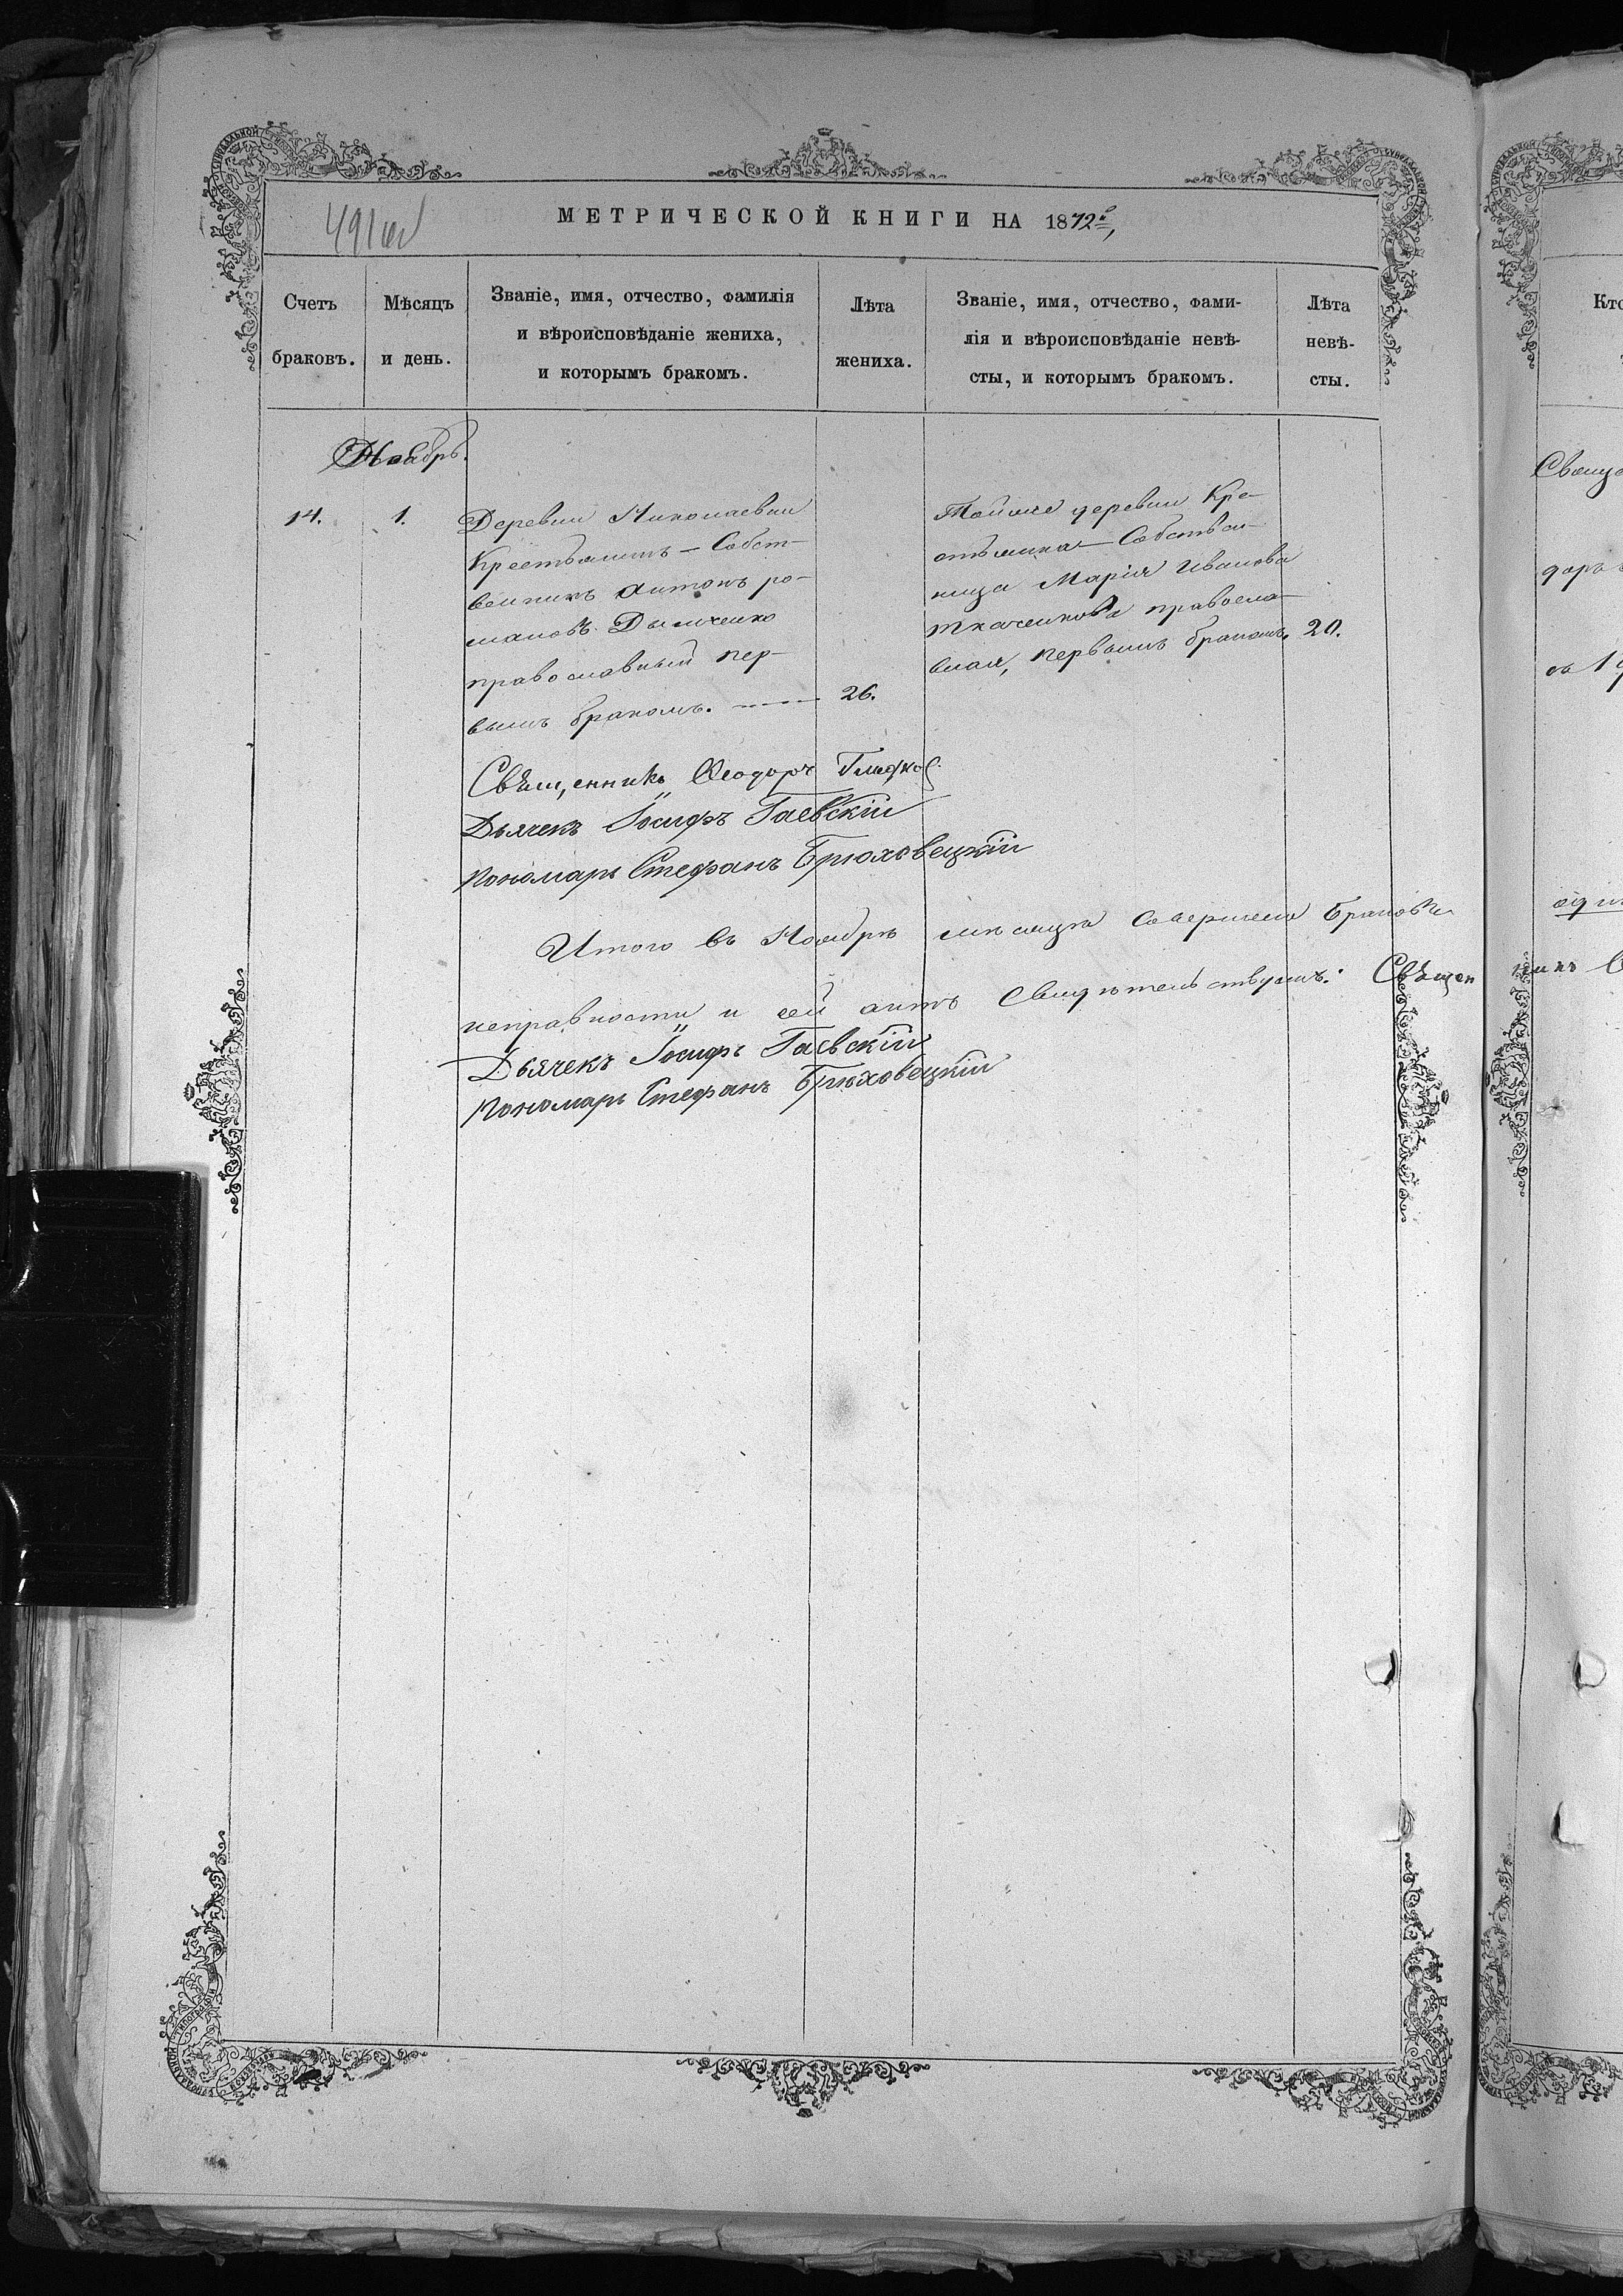 491об
МЕТРИЧЕСКОЙ КНИГИ НА 1872й,
Счетъ браковъ.
Мѣсяцъ и день.
Званіе, имя, отчество, фамилія
и вѣроисповѣданіе жениха,
и которымъ бракомъ.
Лѣта жениха.
Званіе, имя, отчество, фами-
лія и вѣроисповѣданіе невѣ-
сты, и которымъ бракомъ.
Лѣта невѣ-
сты.
Ноябрь.
14. 1.
Деревни Николаевки
Крестьянинъ - Собст-
венникъ Антонъ ро-
мановъ Дымченко
православный пер-
вымъ бракомъ. 26.
Тойже деревни Кре-
стьянка - Собствен-
ница Марія Иванова
Ткаченкова правосла-
вная, первымъ бракомъ, 20.
Священникъ Ѳеодоръ
Дьячекъ Іосифъ Гаевскій
Пономарь Стефанъ Брюховецкій
Итого въ Ноябрѣ мѣсяцѣ Совершено Браковъ
исправности и сей актъ Свидѣтельствуемъ: Священ
Дьячекъ Іосифъ Гаевскій
Пономарь Стефанъ Брюховецкій
Кто
Свяще
доръ
никъ